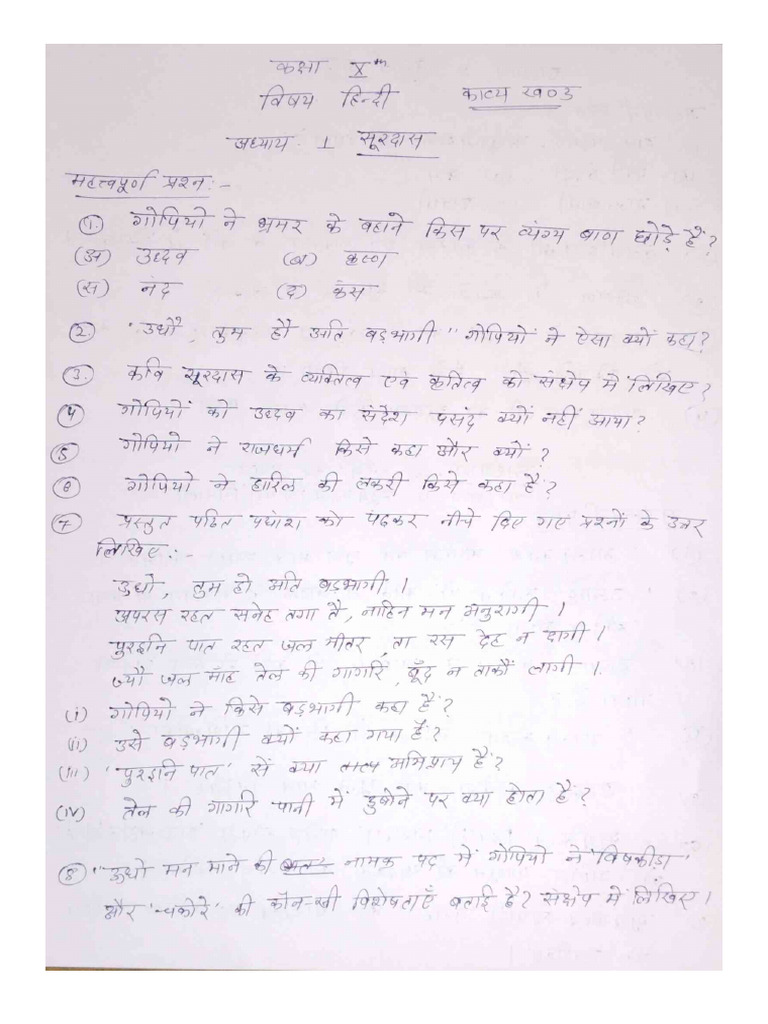 कक्षा Xth
विषय हिन्दी काव्य खण्ड
अध्याय 1 सूरदास
महत्वपूर्ण प्रश्न :-
(1). गोपियों ने भ्रमर के बहाने किस पर व्यंग्य बाण छोड़े हैं ?
(अ) उद्धव (ब) कृष्ण
(स) नंद (द) कंस
(2.) 'उधौ, तुम हौ अति बड़भागी" गोपियों ने ऐसा क्यों कहा ?
(3.) कवि सूरदास के व्यक्तित्व एवं कृतित्व को संक्षेप में लिखिए ?
(4) गोपियों को उद्धव का संदेश पसंद क्यों नहीं आया ?
(5) गोपियो ने राजधर्म किसे कहा और क्यों ?
(6) गोपियो ने हारिल की लकरी किसे कहा है ?
(7) प्रस्तुत पठित पद्यांश को पढकर नीचे दिए गए प्रश्नों के उत्तर
लिखिए :-
उधो, तुम हो अति बड़भागी ।
अपरस रहत सनेह तगा तै, नाहिन मन अनुरागी ।
पुरइनि पात रहत जल भीतर, ता रस देह न दागी ।
ज्यौ जल माँह तेल की गागरि, बूँद न ताकौं लागी ।
(i) गोपियो ने किसे बड़भागी कहा है ?
(ii) उसे बड़भागी क्यों कहा गया है ?
(iii) 'पुरइनि पात' सें क्या अभिप्राय हैं ?
(iv) तेल की गागरि पानी में डुबोने पर क्या होता है ?
(8) "ऊधो मन माने की बात" नामक पद में गोपियो ने 'विषकीड़ा'
और 'चकोरे' की कौन-सी विशेषताएँ बताई है ? संक्षेप में लिखिए ।